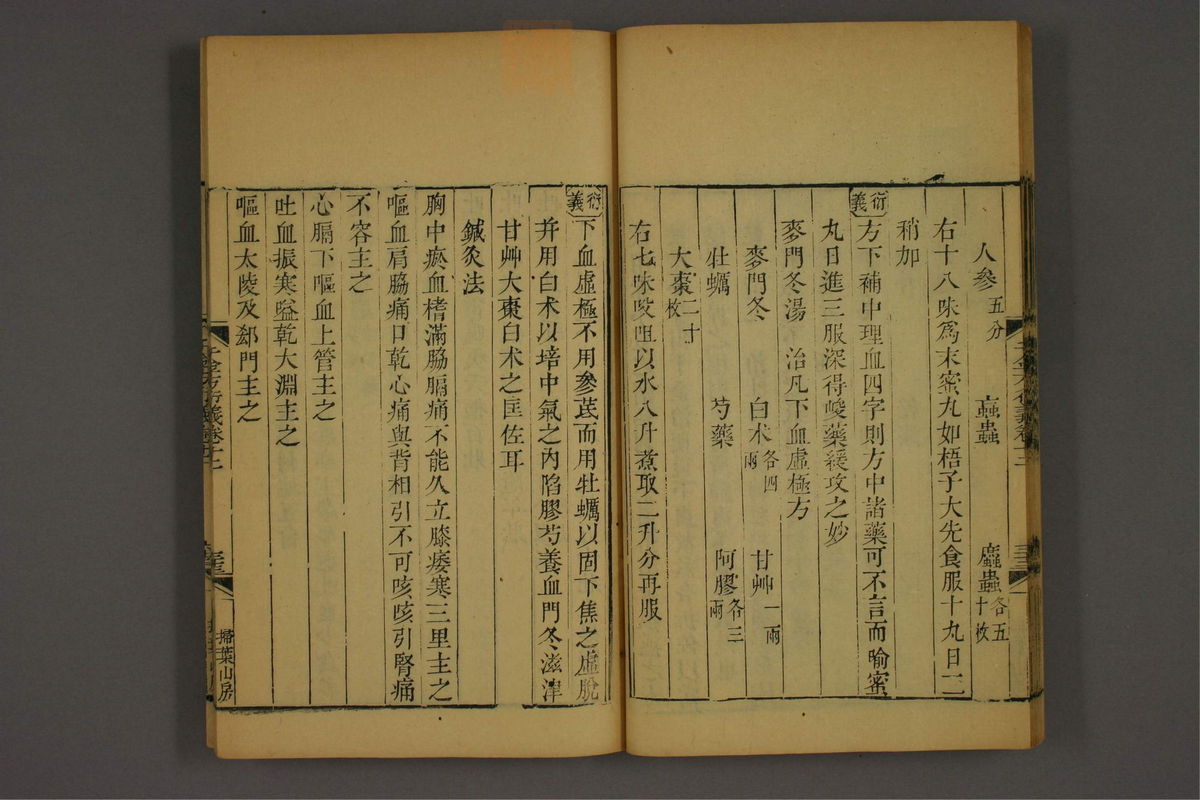 人參五分　蝱蟲　䗪蟲各五十枚
右十八味爲末蜜丸如梧子大先食服十丸日二
稍加
衍義方下補中理血四字則方中諸藥可不言而喻蜜
丸日進三服深得峻藥緩攻之妙
麥門冬湯　治凡下血虛極方
麥門冬　白朮各四兩　甘艸一兩
牡蠣　芍藥　阿膠各三兩
大棗二十枚
右七味㕮咀以水八升煮取二升分再服
衍義下血虛極不用參芪而用牡蠣以固下焦之虛脫
并用白朮以培中氣之內陷膠芍養血門冬滋津
甘艸大棗白朮之匡佐耳
鍼灸法
胸中瘀血榰滿脇膈痛不能久立膝痿寒三里主之
嘔血肩脇痛口乾心痛與背相引不可咳咳引腎痛
不容主之
心膈下嘔血上管主之
吐血振寒嗌乾大淵主之
嘔血太陵及郄門主之
掃葉山房